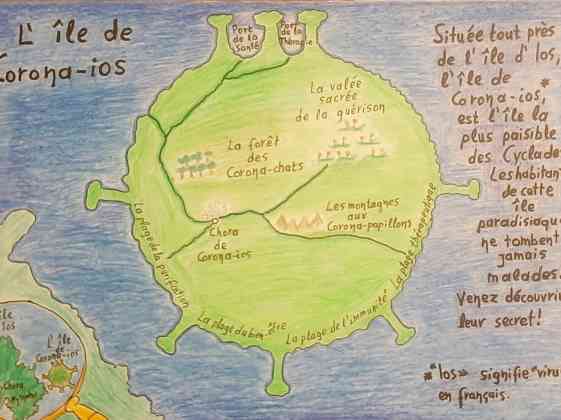 L' île de
Corona-ios
Port
de la
Santé
Port
de la
Thérapie
La valée
sacrée
de la guérison
La forêt
des
Corona-chats
Les montagnes
aux
Corona-papillons
Chora
de
Corona-ios
La plage de la purification
La plage du bien-être
La plage de l'immunité
La plage thérapeutique
Située tout près
de l'île d'Ios,
l'île de
Corona-ios,*
est l'île la
plus paisible
des Cyclade
Les habitan
de cette
île
paradisiaqu
ne tombent
jamais
malades.
Venez découvri
leur secret!
*"ios" signifie "viru
en français.
île
los
L'île
de
Corona-ios
Chora